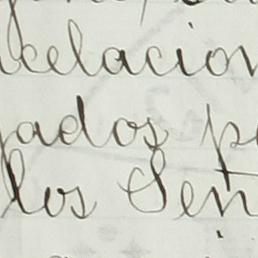 elacion
gados p
los Señ